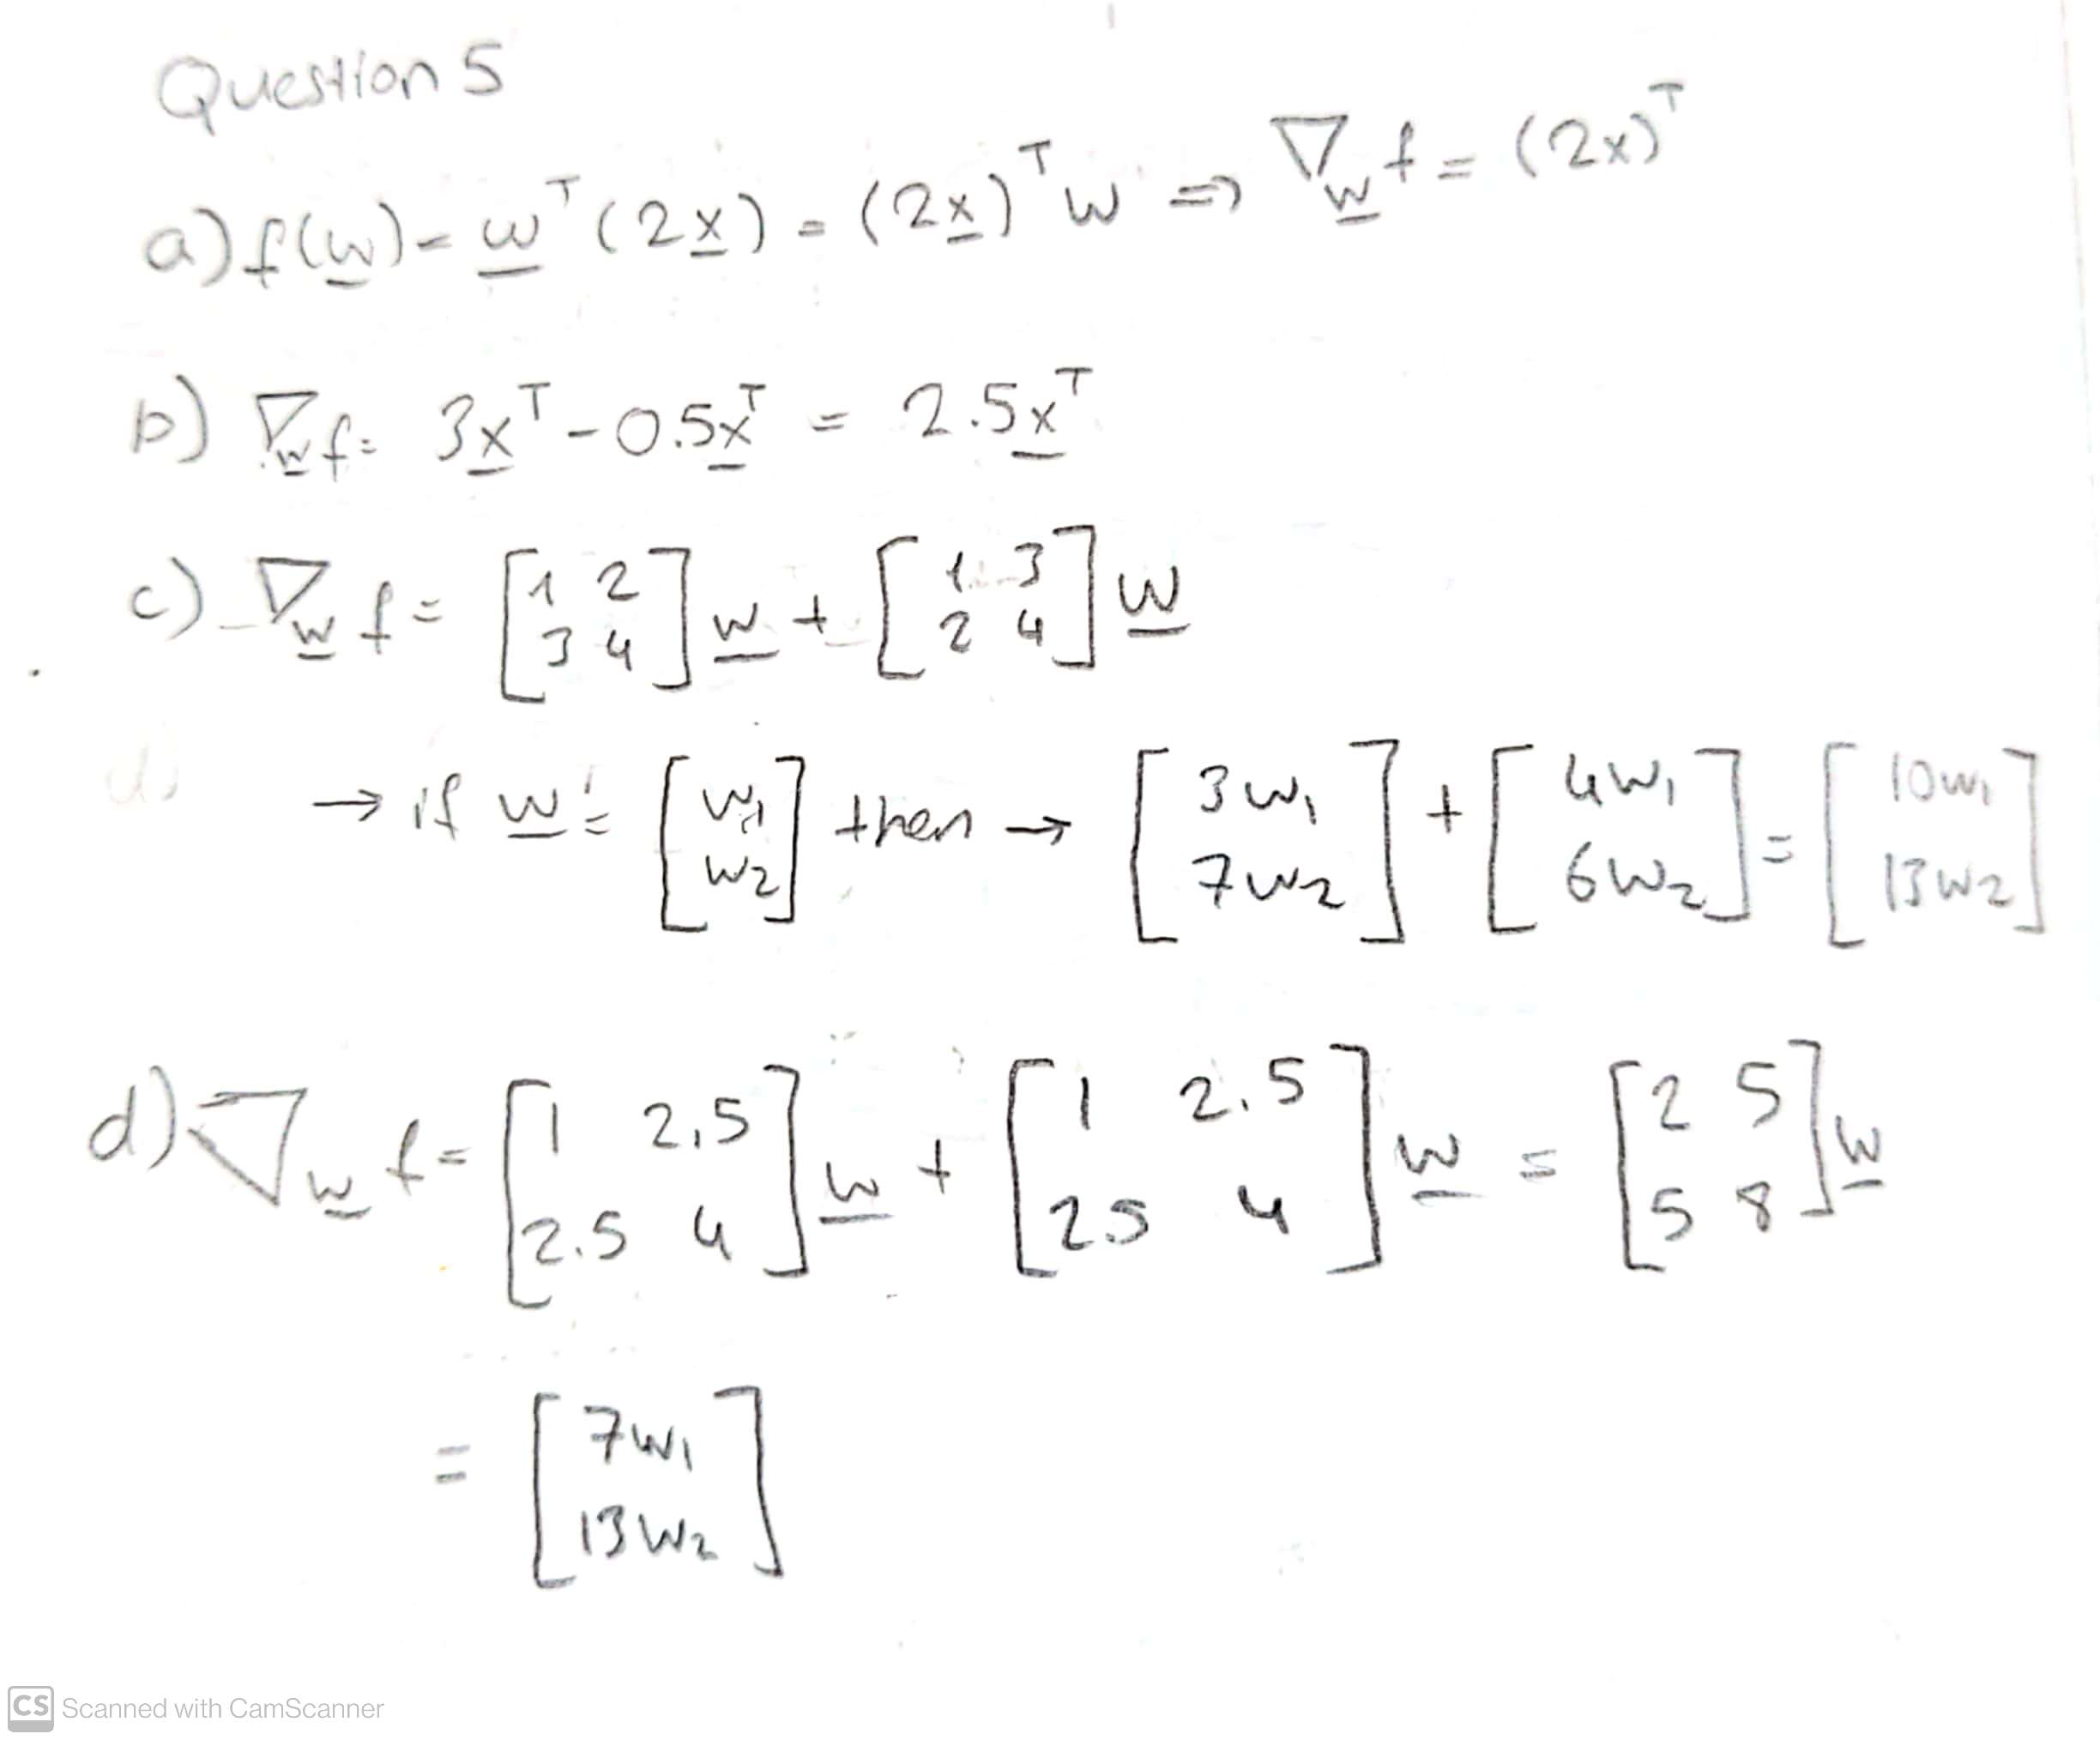 Question 5
a) f(w) = wᵀ (2x) = (2x)ᵀ w => ∇w f = (2x)ᵀ
b) ∇w f = 3xᵀ - 0.5xᵀ = 2.5xᵀ
c) ∇w f = [1 2; 3 4] w + [1 3; 2 4] w
→ if w = [w1; w2] then → [3w1; 7w2] + [4w1; 6w2] = [10w1; 13w2]
d) ∇w f = [1 2,5; 2.5 4] w + [1 2.5; 25 4] w = [2 5; 5 8] w
= [7w1; 13w2]
CS Scanned with CamScanner